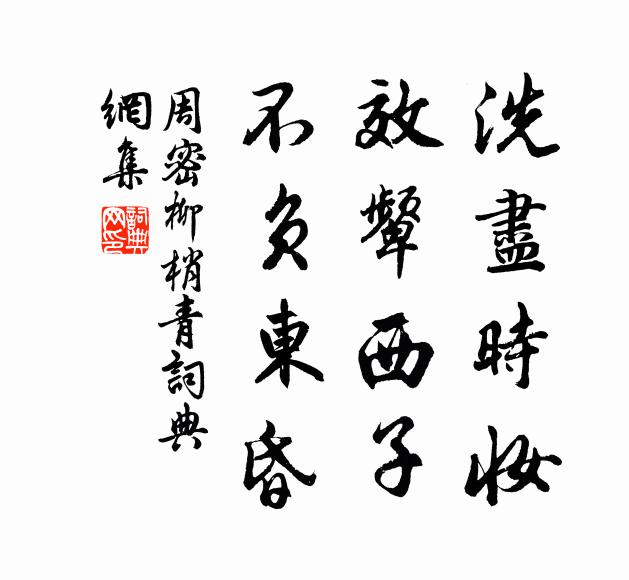 洗盡時妝
效顰西子
不負東昏
周密柳梢青詞典
網集
詞典
网印